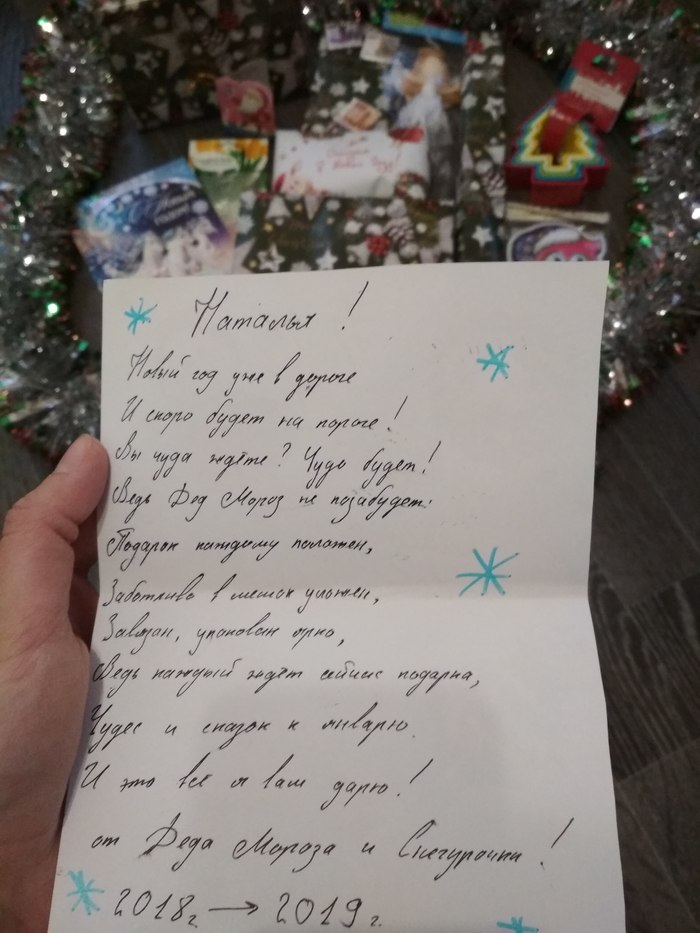 С Новым
годом!
Наталья!
Новый год уже в дороге
И скоро будет на пороге!
Вы чуда ждёте? Чудо будет!
Ведь Дед Мороз не позабудет.
Подарок каждому положен,
Заботливо в мешок уложен,
Завязан, упакован ярко,
Ведь каждый ждёт сейчас подарка,
Чудес и сказок к январю.
И это всё я вам дарю!
от Деда Мороза и Снегурочки!
2018г. → 2019г.